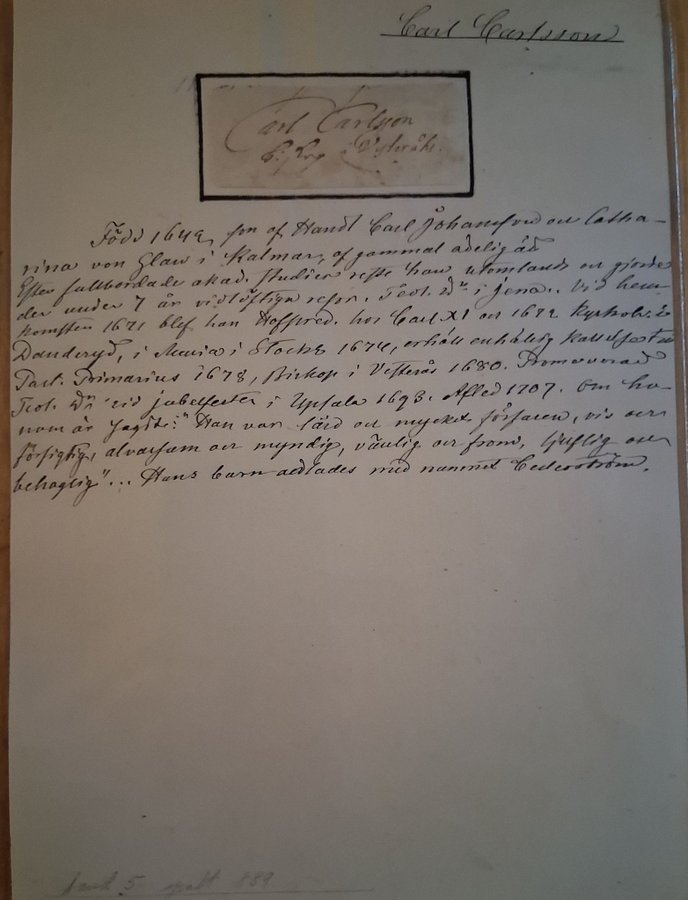 Carl Carlsson
Carl Carlsson
Vesteråhs.
Född 1642, son af Handl Carl Johansson och Catha-
rina von Glaw i Kalmar, af gammal adelig ätt
Efter fullbordade akad. studier reste han utomlands och gjorde
der under 7 år vidlöftiga resor. Teol. Dr i Jena.. Vid hem-
komsten 1671 blef han Hofpred. hos Carl XI och 1672 Kyrkoh. i
Danderyd, i Maria i Stockh 1674, erhöll enhällig kallelse
Past. Primarius 1678, Biskop i Vesterås 1680. Promoverad
Teol. Dr vid jubelfesten i Upsala 1693. Afled 1707. Om ho-
nom är sagdt: "Han var lärd och mycket förfaren, vis och
försigtig, alvarsam och myndig, vänlig och from, ljuflig och
behaglig"... Hans barn adlades med namnet Cederström.
band 5 spalt 889